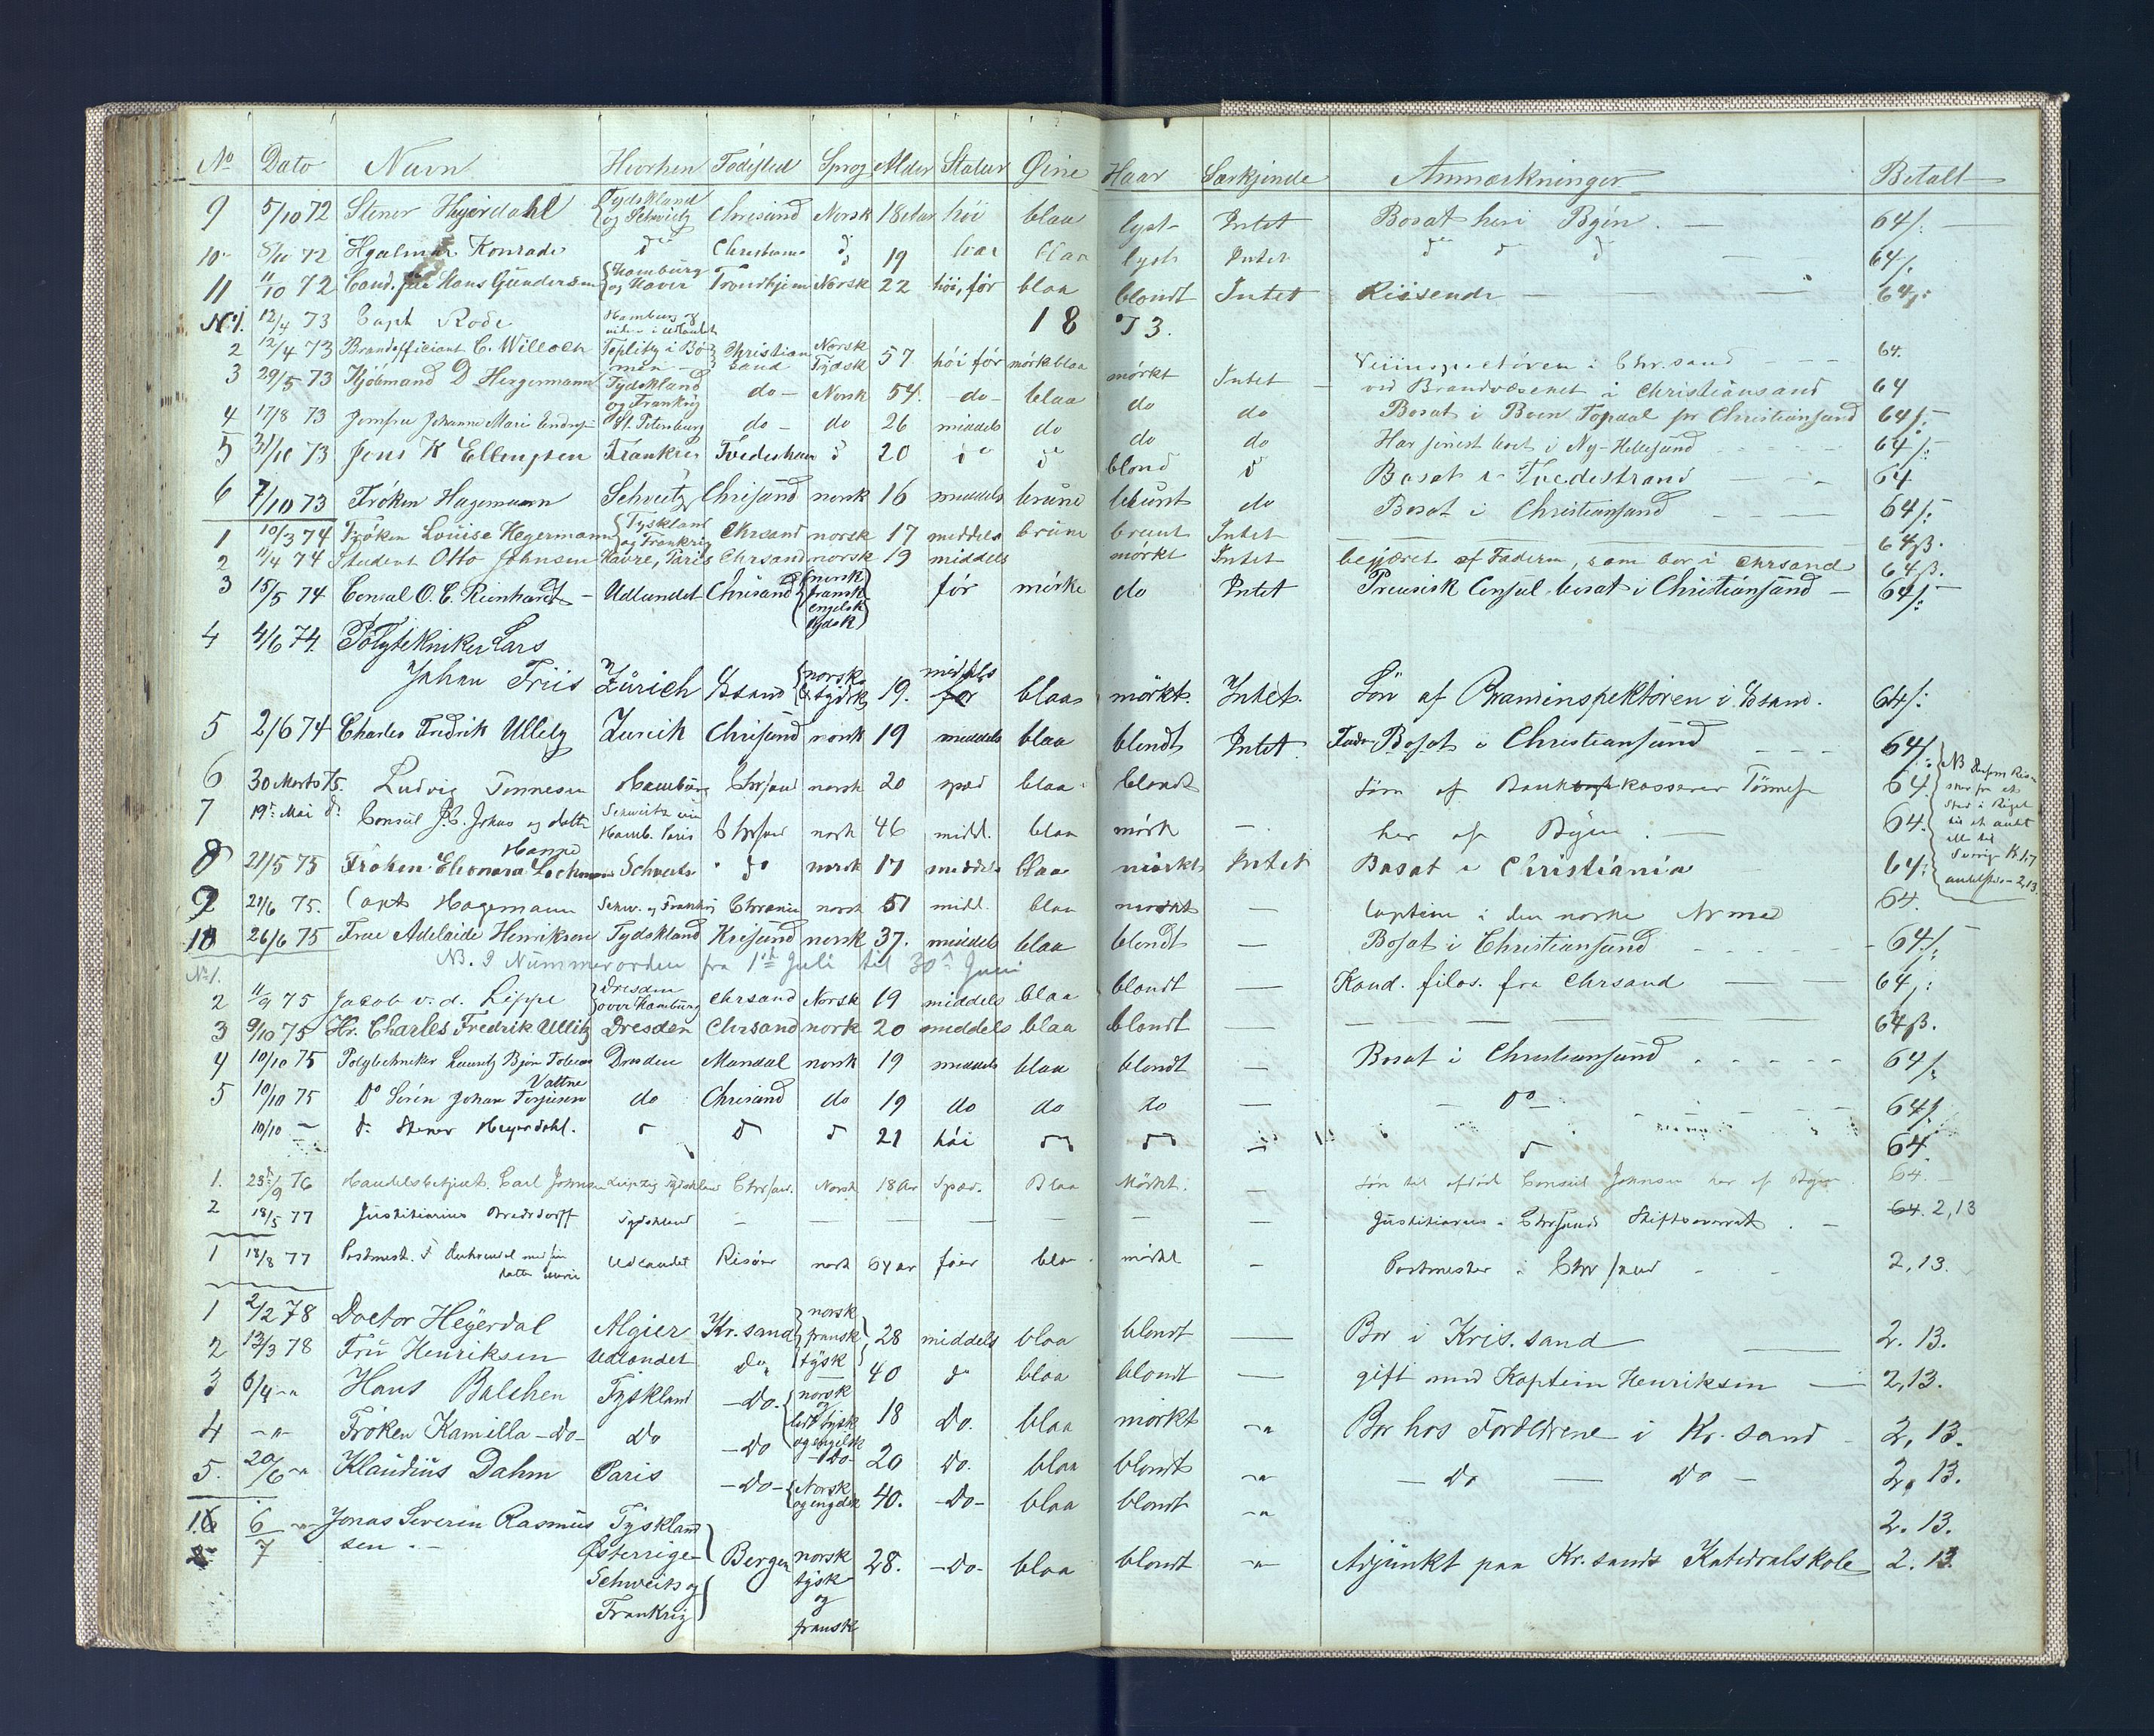 No Dato Navn Hvorhen Födested Sprog Alder Statur Øine Haar Særkjende Anmærkninger Betalt
9 5/10 72 Stener Heyerdahl Tydskland og Schveitz Chrisand Norsk 18 höi blaa lyst Intet Bosat her i Byen. — 64/:
10 72 Hjalmar Konrad do Christiania do 19 blaa lyst Intet do do do 64/:
11 11/10 72 Cand. Hans Gundersen Hamburg og Havre Trondhjem Norsk 22 höi, før blaa blondt Intet Reisende — 64/:
No 1. 12/4 73 Capt Rode Hamburg og 1873.
2 12/4 73 Brandofficiant C. Willoch Teplitz i Böhmen Christiansand Norsk Tydsk 57 höi før mörkblaa mörkt Intet Veiinspectören i Chr.sand 64.
3 29/5 73 Kjöbmand D Hegermann Tydskland og Frankrig do Norsk 54. do blaa do do ved Brandvæsenet i Christiansand 64
4 17/8 73 Jomfru Johanne Marie St. Petersburg do do 26 middels do do do Bosat i Boen Topdal pr Christiansand 64/:
5 31/10 73 Jens K Ellingsen Frankrig Tvedestrand do 20 do do blond do Har senest boet i Ny-Hellesund 64/:
Bosat i Tvedestrand 64
6 7/10 73 Fröken Hagemann Schveitz Chrisand norsk 16 middels brune brunt do Bosat i Christiansand 64/:
1 10/3 74 Fröken Louise Hegermann Tyskland og Frankrig Chrsand norsk 17 middels brune brunt Intet — 64ß.
2 11/4 74 Student Otto Johnsen Havre, Paris Chrsand norsk 19 middels mörkt Intet begjæret af Faderen, som bor i Chrsand 64ß.
3 15/5 74 Consul O. C. Reinhardt Udlandet Chrisand norsk fransk engelsk tydsk før mörke do Intet Preusisk Consul bosat i Christiansand 64/:
4 4/6 74. Polytekniker Lars
Johan Friis Zürich Chsand norsk & tydsk 19. middels før blaa mörkt. Intet. Sön af Brandinspektören i Chsand. 64/:
5 2/6 74 Charles Fredrik Ullitz Zurich Chrisand norsk 19 middels blaa blondt Intet Fader Bosat i Christiansand 64/:
6 30 Marts 75. Ludvig Tönnesen Hamburg Chrsand norsk 20 spæd blaa blondt Sön af Bankkasserer Tönnesen 64.
7 19de Mai do Consul J. C. Johns og datter Schweitz via Hamb. Paris Chrsand norsk 46 midd. blaa mörk — her af Byen. — 64.
NB
8 21/5 75 Fröken Hanne Eleonora Lochmann Schveitz do norsk 17 middels blaa mörkt Intet Bosat i Christiania 64/:
9 21/6 75. Capt Hagemann Schw. og Frankrig Chrania norsk 51 midd. blaa mörkt — Captein i den norske Armee 64.
10 26/6 75 Frue Adelaide Henriksen Tydskland Krisand norsk 37. middels blaa blondt — Bosat i Christiansand 64/:
No 1. NB. I Nummerorden fra 1ste Juli til 30te Juni
2 11/9 75 Jacob v. d. Lippe Dresden over Hamburg Chrsand Norsk 19 middels blaa blondt — Kand. filos. fra Chrsand — 64/:
3 9/10 75 Hr. Charles Fredrik Ullitz Dresden Chrsand norsk 20 middels blaa blondt — 64ß.
4 10/10 75 Polytechniker Lauritz Björn Dresden Mandal norsk 19 middels blaa blondt — Bosat i Christiansand 64/:
5 10/10 75 Do Sören Johan Vattne Terjusen do Chrisand do 19 do do do — Do 64/:
10/10 — do Stener Heyerdahl. do do do 21 höi do do — do 64
1. 23/9 76 Handelsbetjent Carl Johnsen Leipzig Tydskland Chrsand. Norsk 18 Aar Spæd. Blaa Mörkt. — Sön til afdöde Consul Johnsen her af Byen 64.
2 18/5 77 Justitiarius Bredsdorff Tydskland — Justitiarius i Chrsands Stiftsoverret. 64. 2,13
1 18/8 77 Postmest. med sin datter Marie Udlandet Risöer norsk 64 aar föer blaa mörkt — Postmester i Chrsand 2,13.
1 2/2 78 Doctor Heyerdal Algier Kr.sand norsk fransk tysk 28 middels blaa blondt — Bor i Kris.sand — 2. 13.
2 13/3 78 Frü Henriksen Udlandet Do 40 do blaa blondt — gift med Kaptein Henriksen — 2,13.
3 6/4 -"- Hans Balchen Tyskland Do. norsk og lidt tysk og engelsk 18 Do. blaa mörkt -"- Bor hos Forældrene i Kr.sand 2, 13.
4 -"- Fröken Kamilla -Do- Do -Do -Do- 20 Do. blaa blondt -"- -Do — Do - 2, 13.
5. 20/6 -"- Klaudius Dahm Paris -Do- Norsk og engelsk 40. -Do- blaa blondt -"- 2. 13.
1 6/7 -"- Jonas Severin Rasmus
sen. Tyskland Østerrige Schweits og Frankrig Bergen norsk tysk og fransk 28. -Do- blaa blondt -"- Adjunkt paa Kr.sands Katedralskole 2. 13.